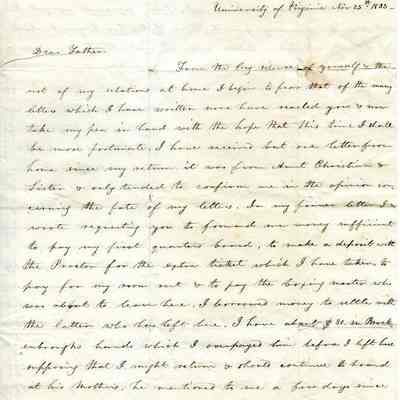 University of Virginia Nov 25th 1833
Dear Father.
From the long silence of yourself & the
rest of my relations at home I begin to fear that of the many
letters which I have written none have reached you & now
take my pen in hand with the hope that this time I shall
be more fortunate. I have received but one letter from
home since my return it was from Aunt Christian &
Sister & only tended to confirm me in the opinion con
cerning the fate of my letters. In my former letter I
wrote requesting you to forward me money sufficient
to pay my first quarters board, to make a deposit with
the Proctor for the extra ticket which I have taken, to
pay for my room rent & to pay the boxing master who
was about to leave here. I borrowed money to settle with
the latter who has left here. I have about $ 30. in
hands which I overpayed him before I left here
supposing that I might return & continue to board
at his Mothers, he mentioned to me a few days since